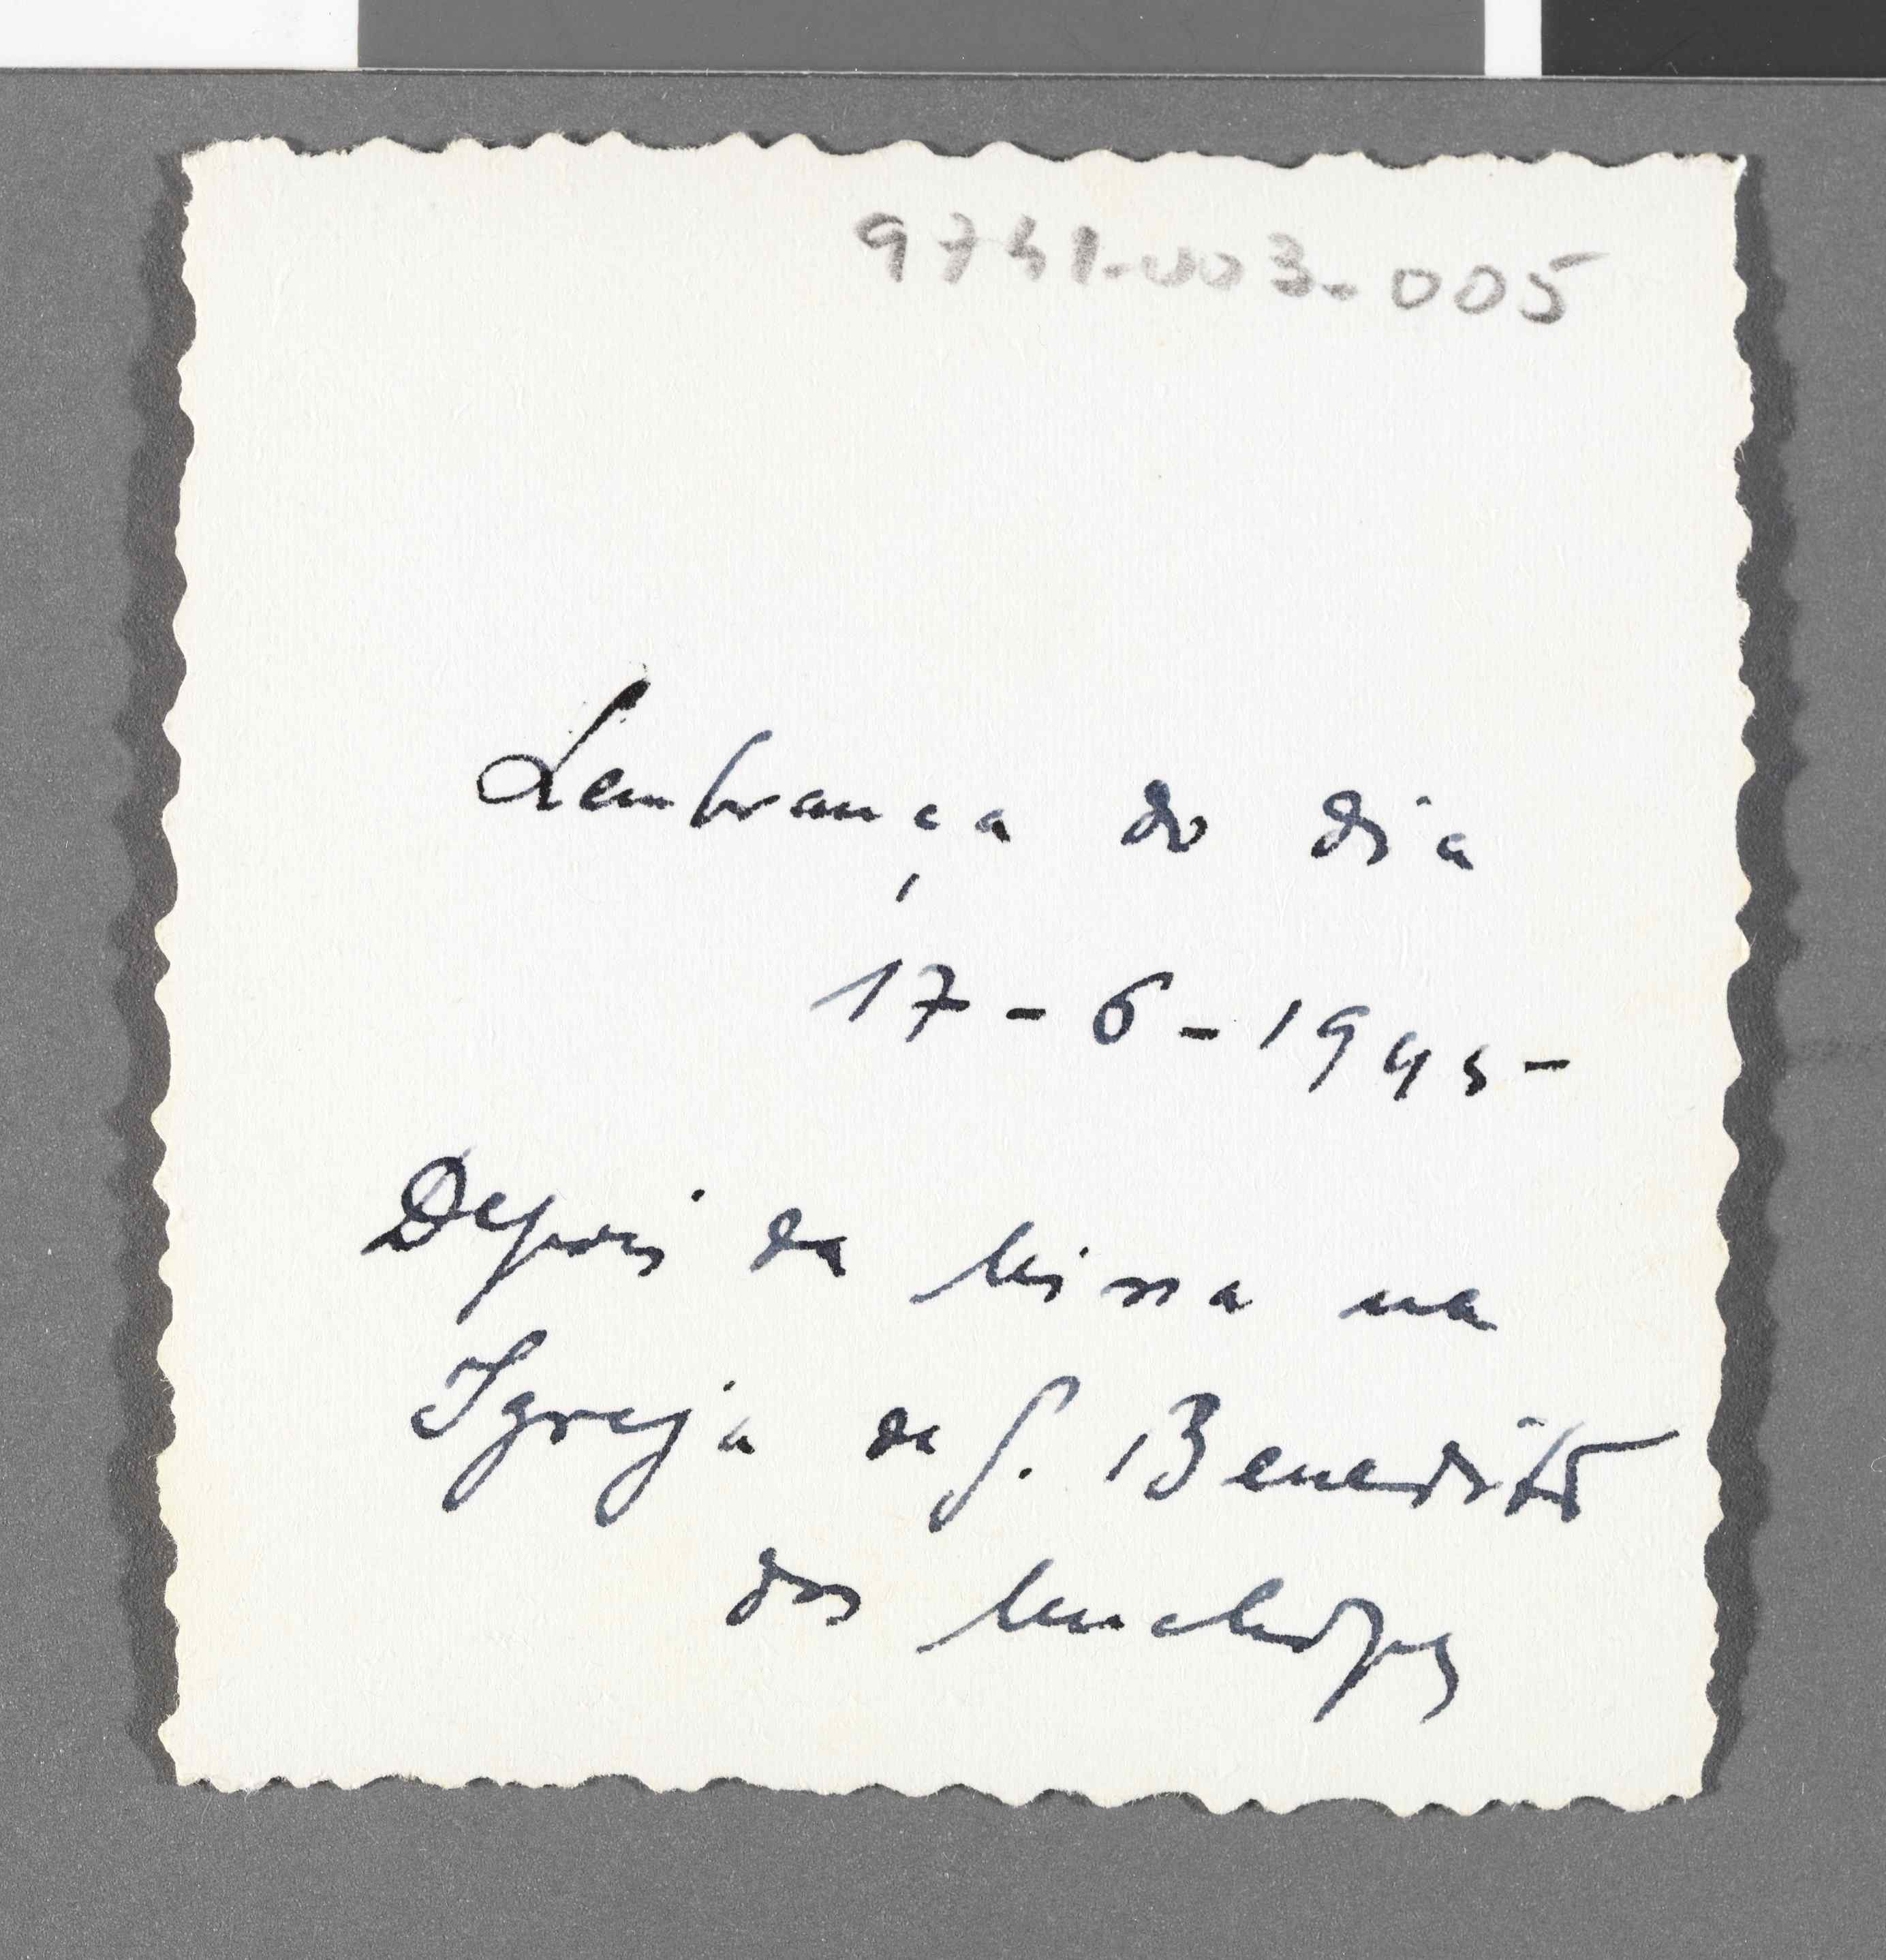 9741-003-005
Lembrança do dia
17-6-1945-
Depois da Missa na
Igreja de S. Benedito
dos Muchopes